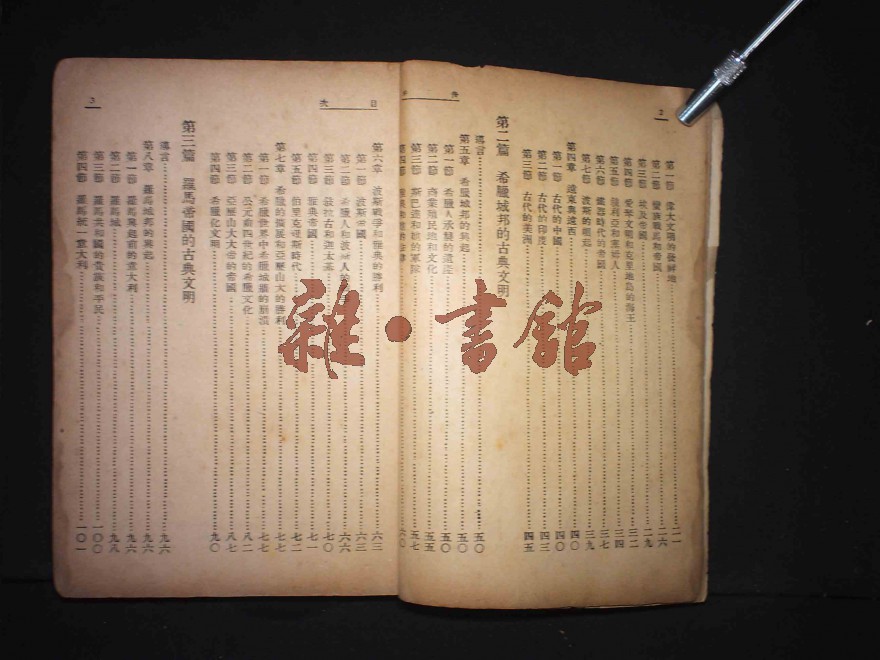 2
第一節 偉大文明的發祥地……二一
第二節 蠻族戰馬和帝國……二六
第三節 埃及帝國……二九
第四節 愛琴文明和克里地島的海王……三二
第五節……三四
第六節 鐵器時代的帝國……三七
第七節 波斯的崛起……三九
第四章 遠東與遠西……四〇
第一節 古代的中國……四〇
第二節 古代的印度……四三
第三節 古代的美洲……四五
第二篇 希臘城邦的古典文明
導言……五〇
第五章 希臘城邦的興起……五〇
第一節 希臘人承襲的遺產……五〇
第二節 商業殖民地和文化……五五
第三節 斯巴達和她的軍隊……五七
第四節……六〇
目次
3
第六章 波斯戰爭和雅典的勝利……六三
第一節 波斯帝國……六三
第二節 希臘人和波斯人的……六六
第三節……七〇
第四節 雅典帝國……七一
第五節 伯里克理斯時代……七二
第七章 希臘的擴展和亞歷山大的勝利……七七
第一節 希臘世界中希臘城邦的崩潰……七七
第二節 公元前四世紀的希臘文化……八二
第三節 亞歷山大大帝的帝國……八七
第四節 希臘化文明……九〇
第三篇 羅馬帝國的古典文明
導言……九六
第八章 羅馬城邦的興起……九六
第一節 羅馬興起前的意大利……九六
第二節 羅馬城……九八
第三節 羅馬共和國的貴族和平民……一〇〇
第四節 羅馬統一意大利……一〇一
雜·書館